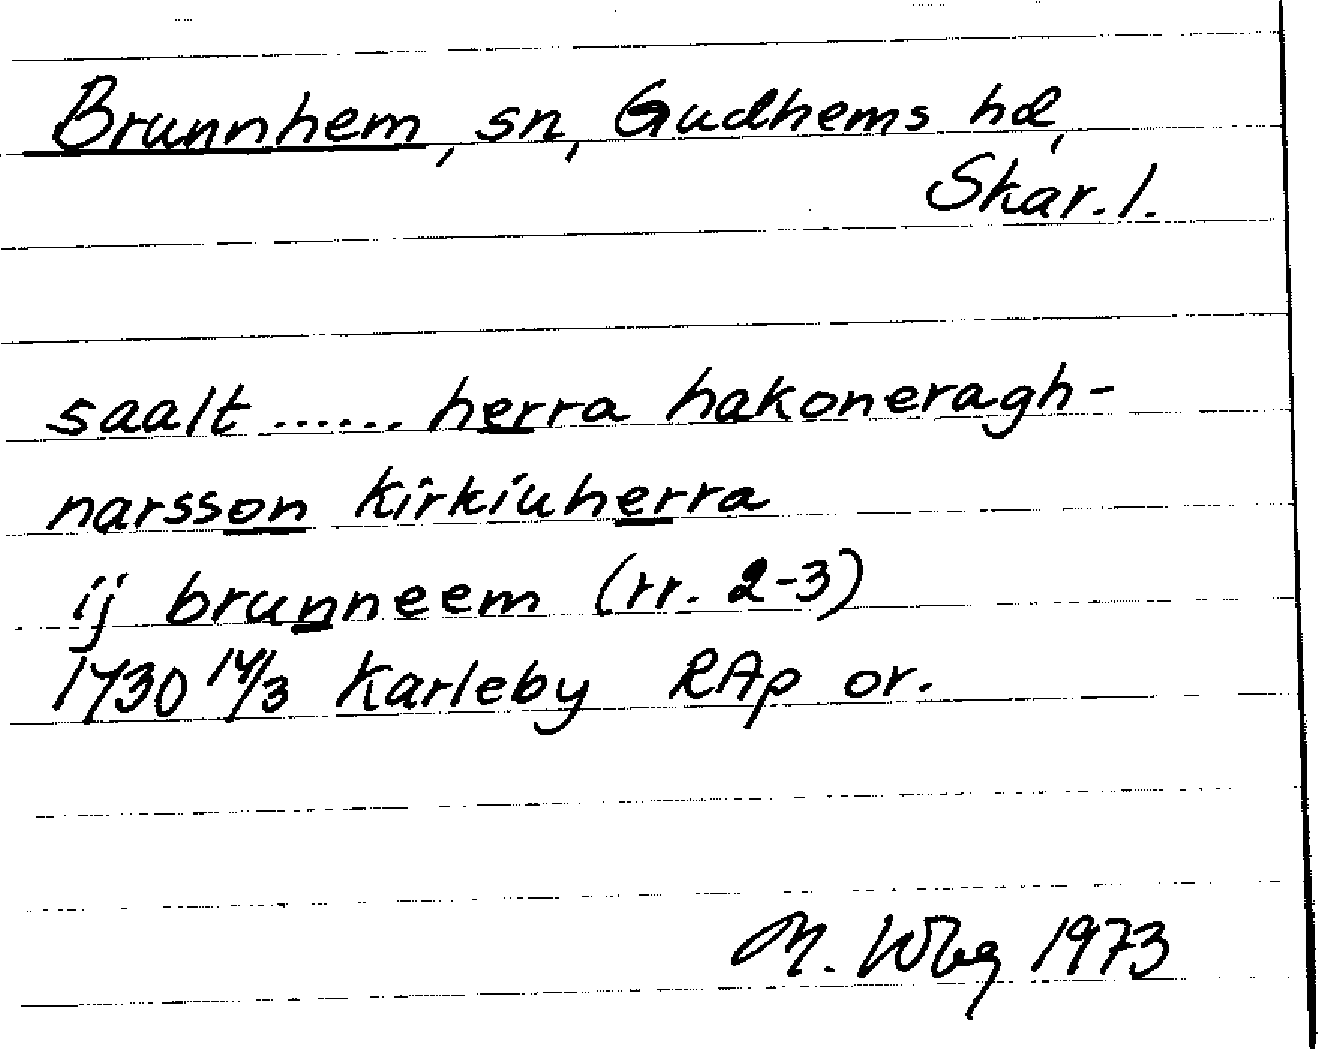 Brunnhem, sn, Gudhems hd,
Skar. l.
saalt ...... herra hakoneragh-
narsson kirkiuherra
ij brunneem (rr. 2-3)
1430 14/3 Karleby RAp or.
M. Wbg 1973